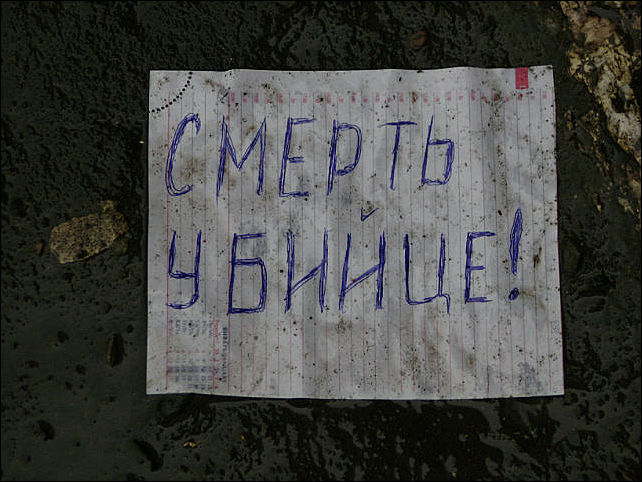 СМЕРТЬ
УБИЙЦЕ!